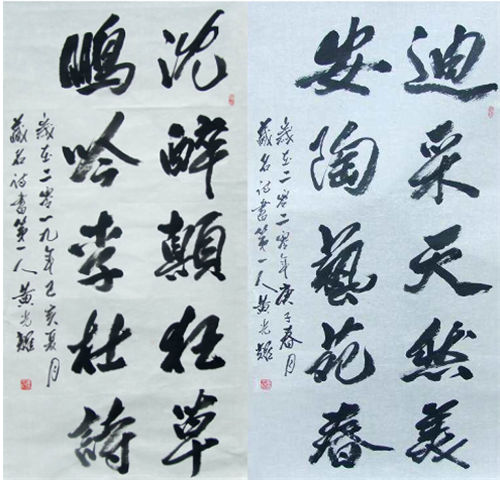 迪采天然美
安陶藝苑春
歲在二零二零年庚子春月
藏名詩書第一人黄光耀
沈醉顛狂草
鵬吟李杜詩
歲在二零一九年己亥夏月
藏名詩書第一人黄光耀